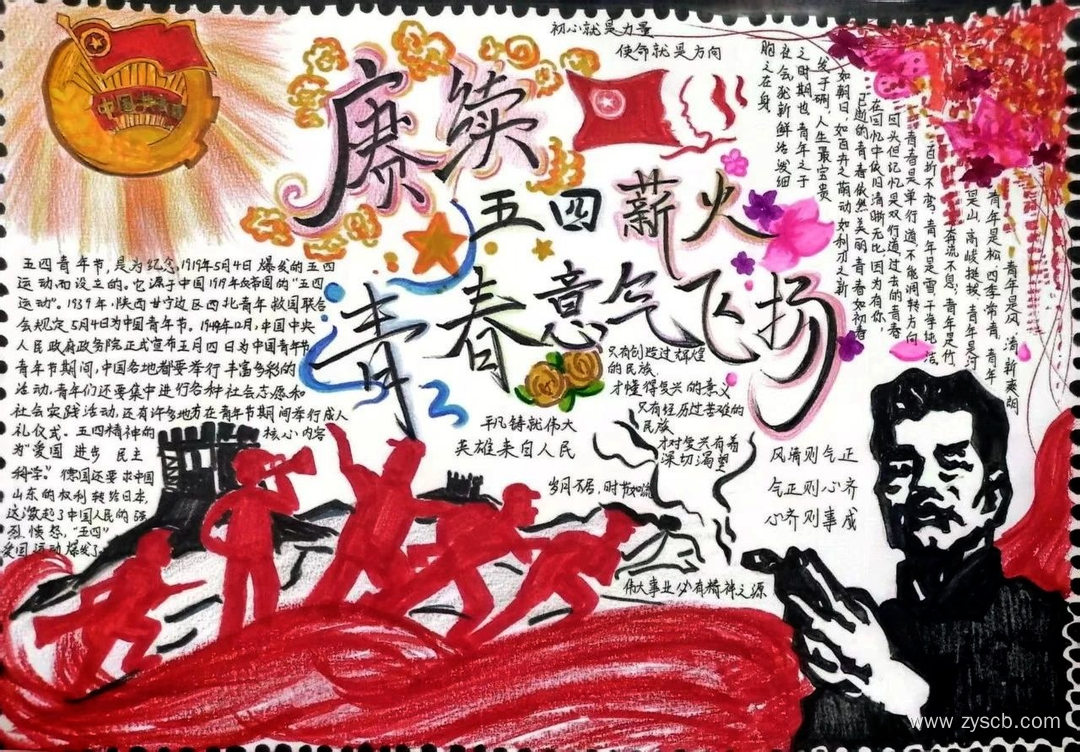 中国共青团
赓续
五四薪火
青春意气飞扬
初心就是力量
使命就是方向
五四青年节,是为纪念1919年5月4日爆发的五四
运动而设立的。它源于中国1919年反帝国的“五四
运动”。1939年,陕西甘宁边区西北青年救国联合
会规定5月4日为中国青年节。1949年12月,中国中央
人民政府政务院正式宣布五月四日为中国青年节
青年节期间,中国各地都要举行丰富多彩的
活动,青年们还要集中进行各种社会志愿和
社会实践活动,还有许多地方在青年节期间举行成人
礼仪式。五四精神的核心内容
为“爱国 进步 民主
科学”德国还要求中国
山东的权利转给日本,
这激起了中国人民的强
烈愤怒,“五四”
爱国运动爆发了
青年是风,清新爽朗
青年是松,四季常青,青年
是山,高峻挺拔,青年是河
奔流不息;青年是竹
百折不弯,青年是雪,干净纯洁
青春是单行道,不能调转方向
回头但记忆是双行道,过去的青春
在回忆中依旧清晰无比,因为有你,
已逝的青春依然美丽,青春如初春
如朝日,如百卉之萌动,如利刃之新
发于硎,人生最宝贵
之时期也,青年之于
社会,犹新鲜活泼细
胞之在身
只有创造过辉煌
的民族,
才懂得复兴的意义
只有经历过苦难的
民族
才对复兴有着
深切渴望
平凡铸就伟大
英雄来自人民
岁月不居,时节如流
伟大事业必有精神之源
风清则气正
气正则心齐
心齐则事成
www.zyscb.com